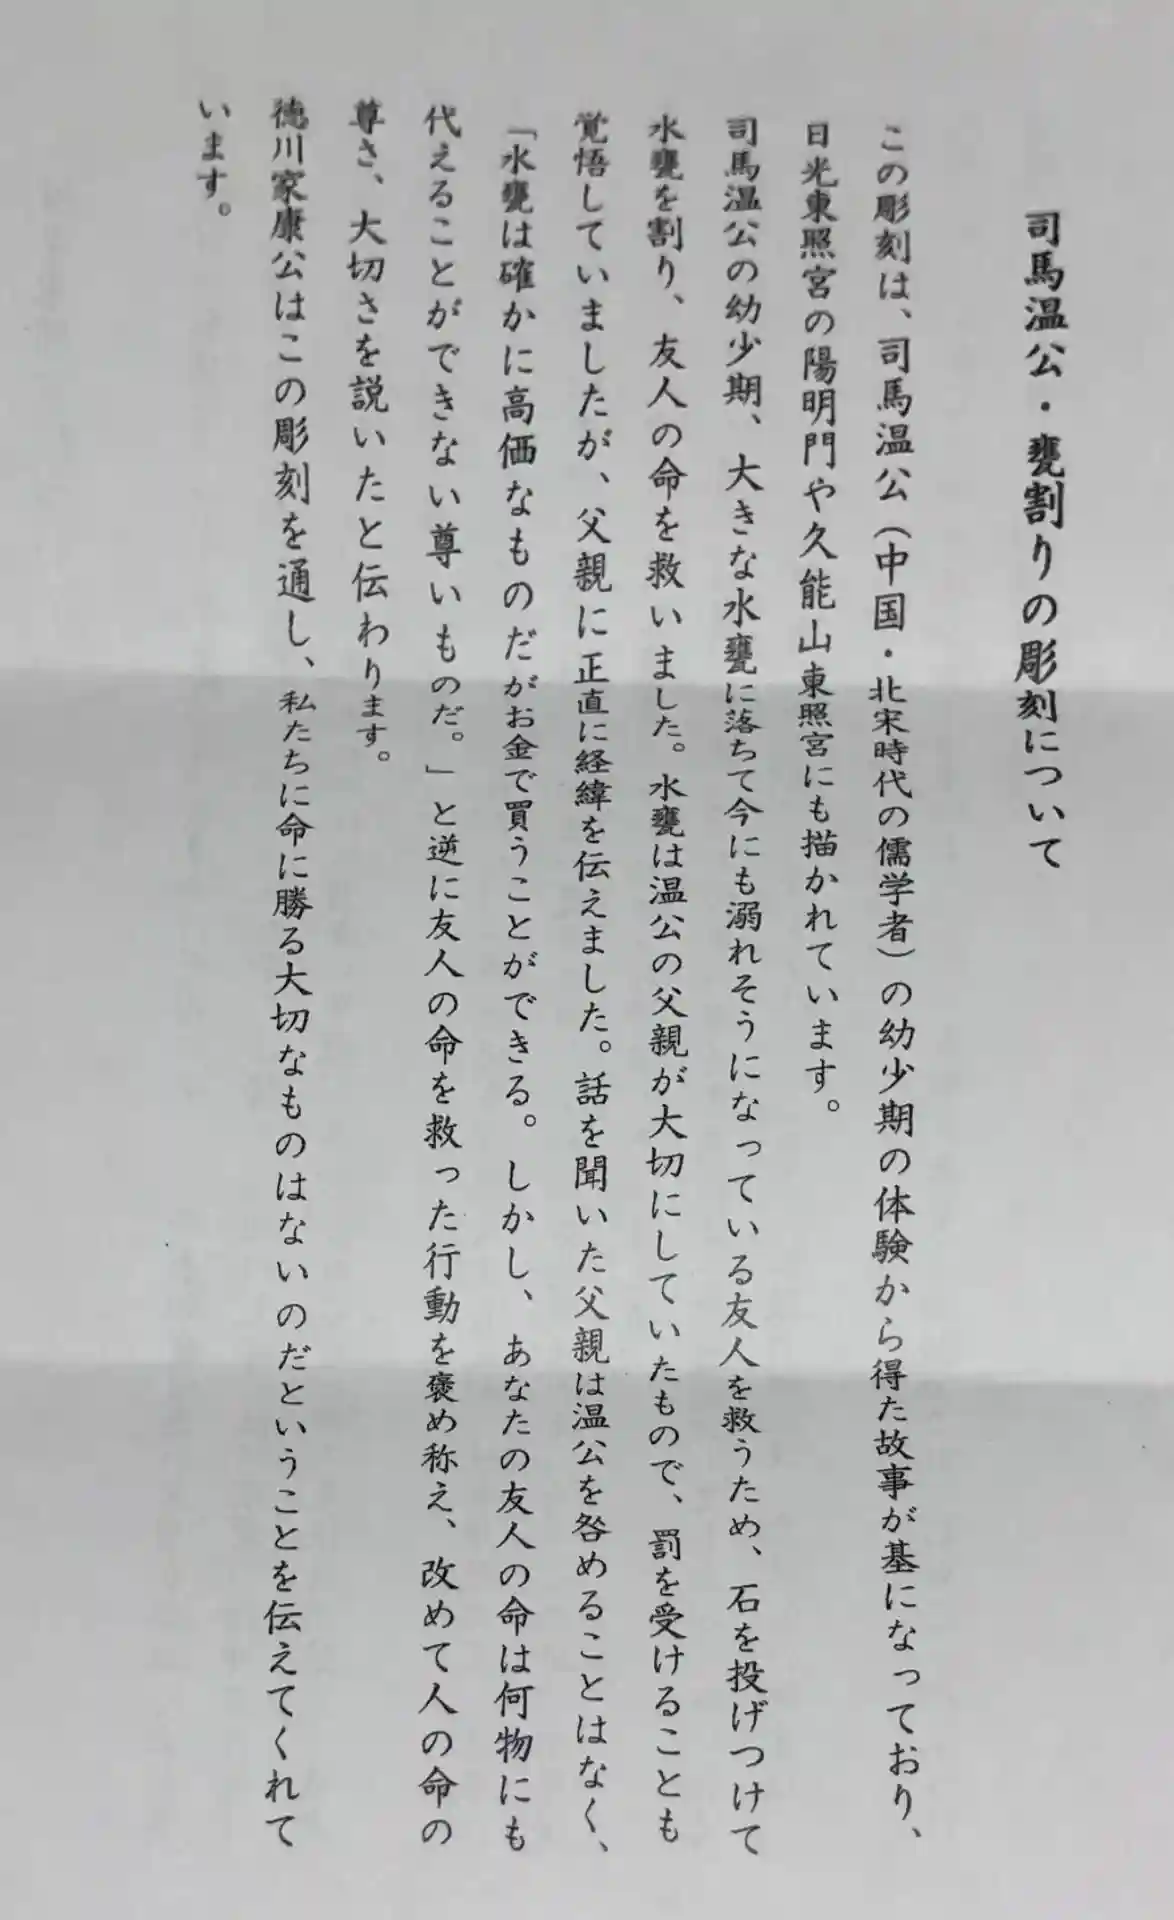 司馬温公・甕割りの彫刻について
この彫刻は、司馬温公（中国・北宋時代の儒学者）の幼少期の体験から得た故事が基になっており、
日光東照宮の陽明門や久能山東照宮にも描かれています。
司馬温公の幼少期、大きな水甕に落ちて今にも溺れそうになっている友人を救うため、石を投げつけて
水甕を割り、友人の命を救いました。水甕は温公の父親が大切にしていたもので、罰を受けることも
覚悟していましたが、父親に正直に経緯を伝えました。話を聞いた父親は温公を咎めることはなく、
「水甕は確かに高価なものだがお金で買うことができる。しかし、あなたの友人の命は何物にも
代えることができない尊いものだ。」と逆に友人の命を救った行動を褒め称え、改めて人の命の
尊さ、大切さを説いたと伝わります。
徳川家康公はこの彫刻を通し、私たちに命に勝る大切なものはないのだということを伝えてくれて
います。